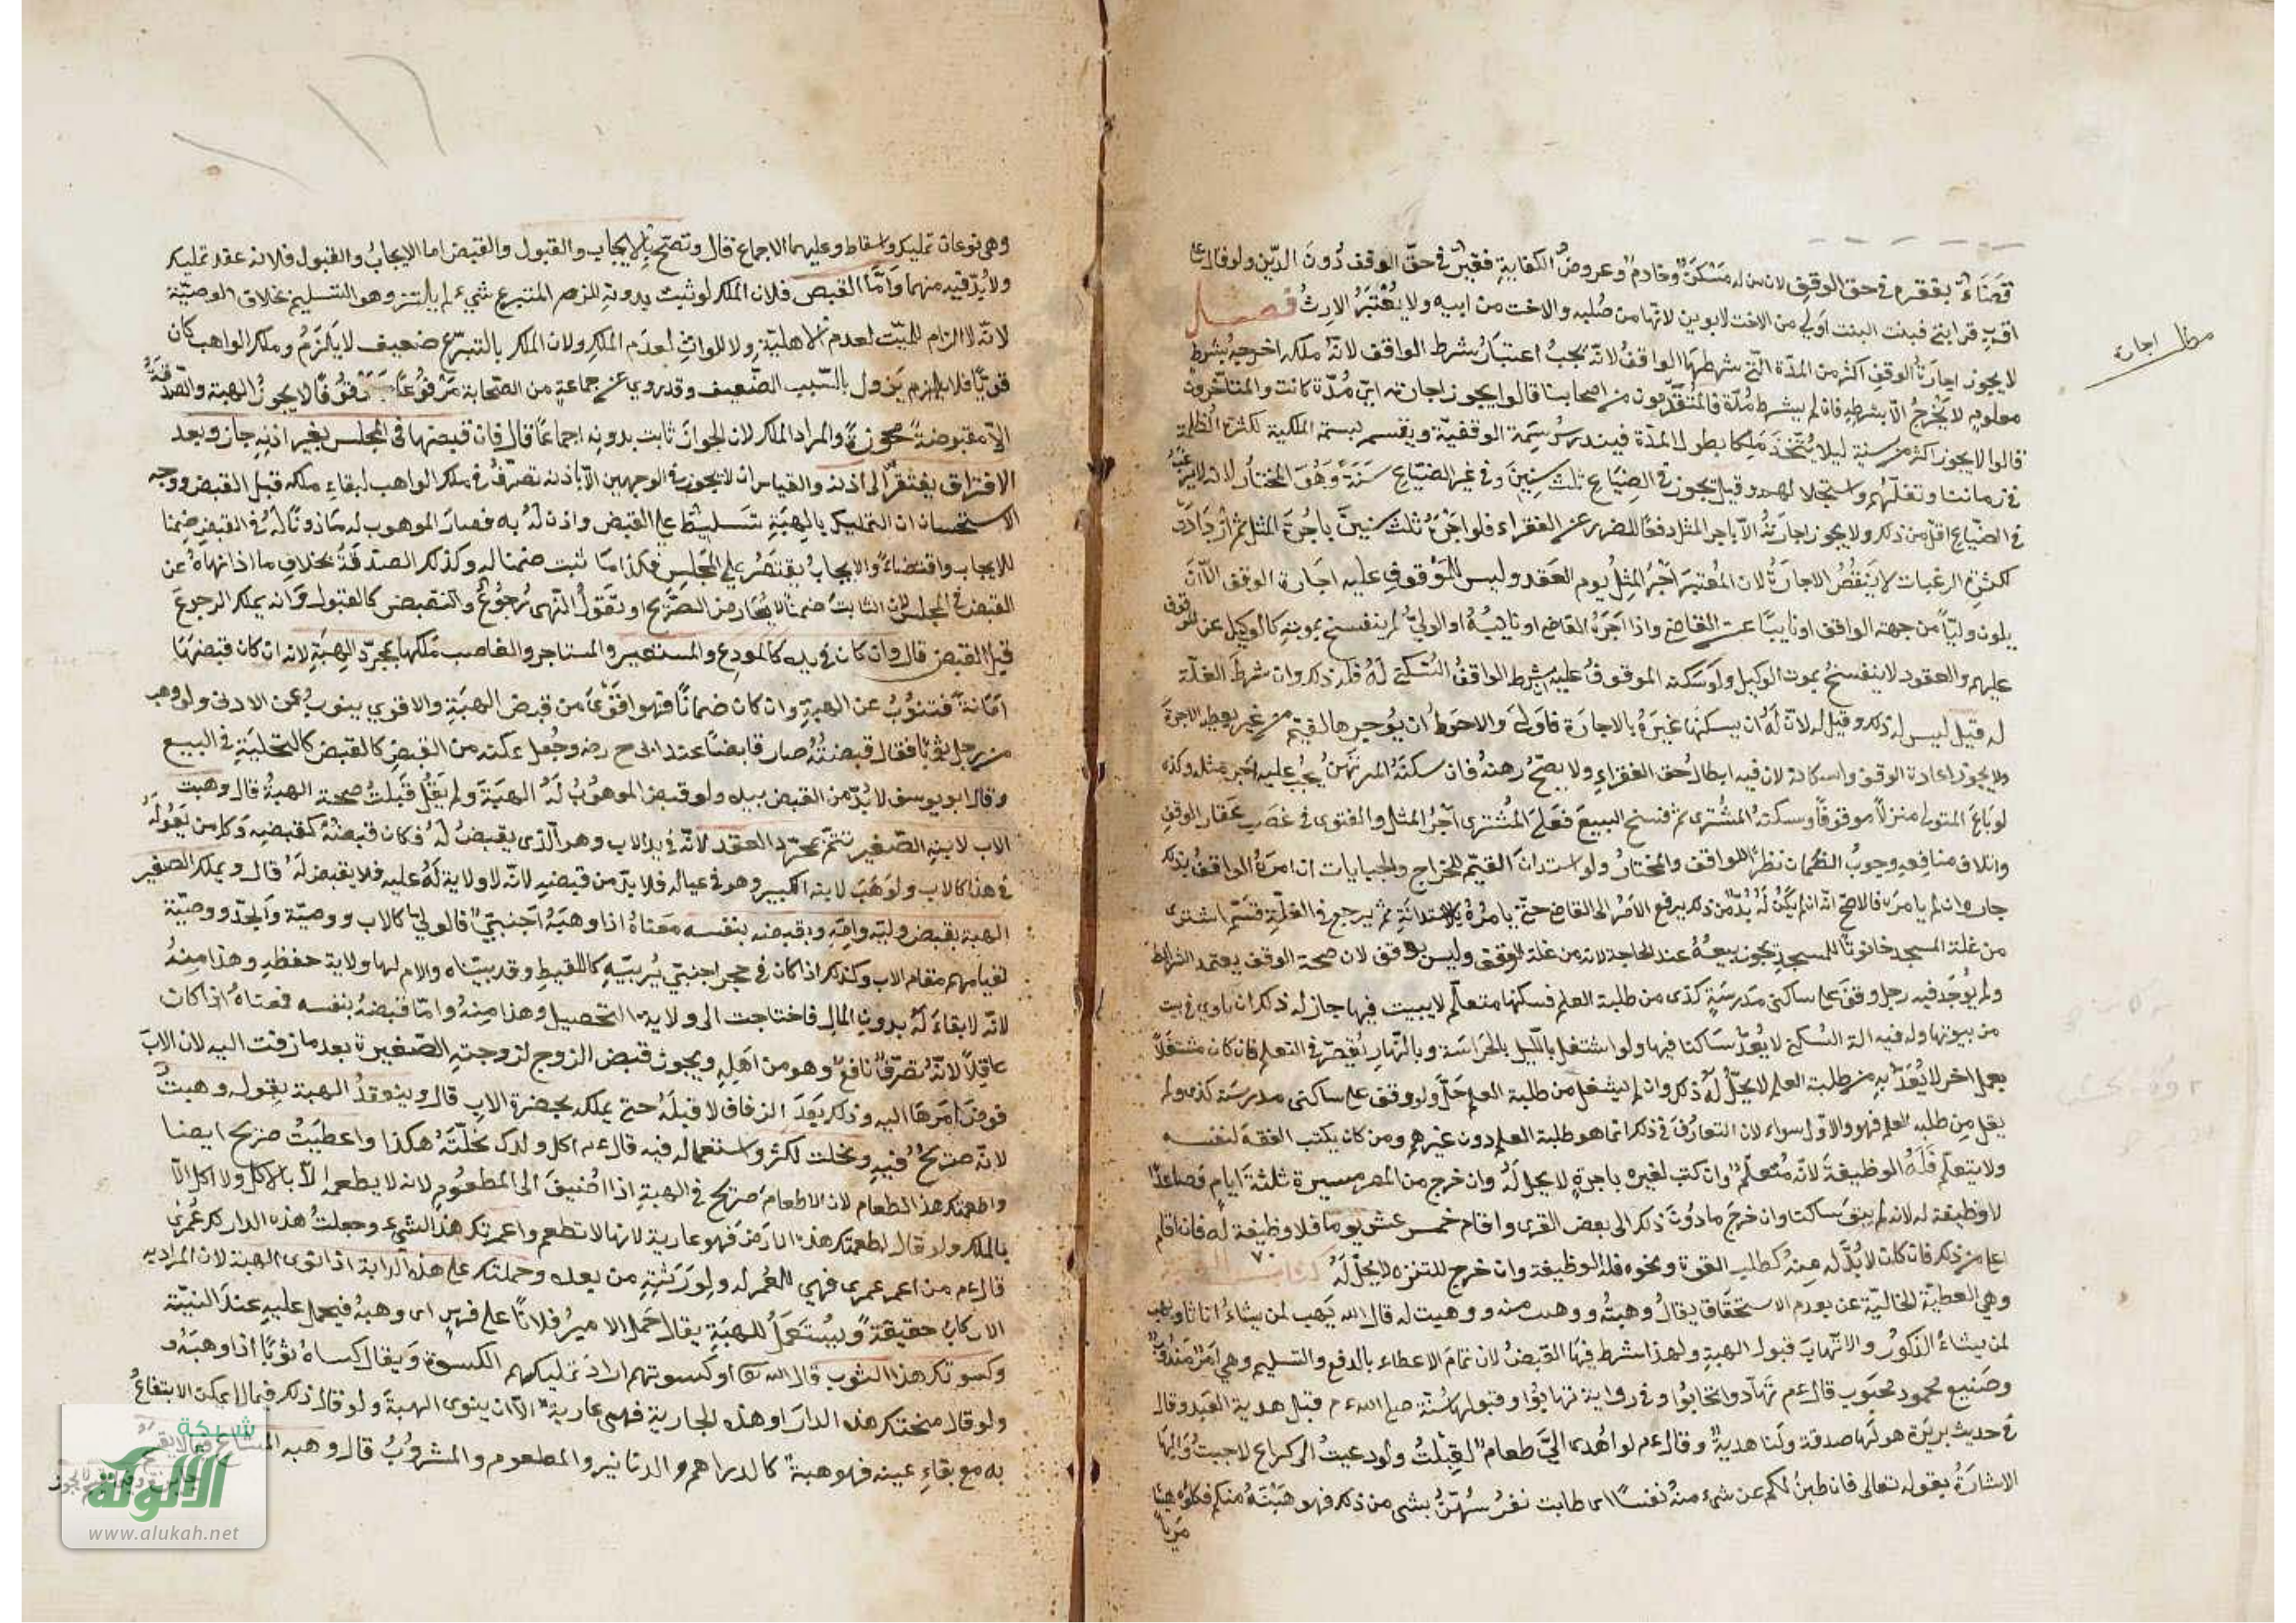 قضاء بفقره في حق الوقف لان من له مسكن وخادم وعروض الكفاية فقير في حق الوقف دون الدين ولو قال على
اقرب قرابتي فبنت البنت اولى من الاخت لابوين لانها من صلبه والاخت من ابيه ولا يعتبر الارث فصل
لا يجوز اجارة الوقف اكثر من المدة التي شرطها الواقف لانه يجب اعتبار شرط الواقف لانه ملكه اخرجه بشرط
معلوم لا يخرج الا بشرطه فان لم يشرط مدة فالمتقدمون من اصحابنا قالوا يجوز اجارته اي مدة كانت والمتاخرون
قالوا لا يجوز اكثر من سنة ليلا يتخذ ملكا بطول المدة فيندرس سمة الوقفية ويقسم بسمة الملكية لكثرة الظلمة
في زماننا وتغلبهم واستحلالهم وقيل يجوز في الضياع ثلث سنين وفي غير الضياع سنة وهو المختار لانه لا يرغب
في الضياع اقل من ذلك ولا يجوز اجارته الا باجر المثل دفعا للضرر عن الفقراء فلو اجره ثلث سنين باجرة المثل ثم ازدادت
لكثرة الرغبات لا ينقض الاجارة لان المعتبر اجر المثل يوم العقد وليس للموقوف عليه اجارة الوقف الا ان
يكون وليا من جهة الواقف او نايبا عن القاضي واذا اجره القاضي او نايبه او الولي لم ينفسخ بموته كالوكيل عن الموقوف
عليهم والعقود لا ينفسخ بموت الوكيل ولو سكنه الموقوف عليه بشرط الواقف السكنى له فله ذلك وان شرط الغلة
له قيل ليس له ذلك وقيل له لان له ان يسكنها غيره بالاجارة فاولى والاحوط ان يوجرها القيم من غيره يعطيه الاجرة
ولا يجوز اعارة الوقف واسكانه لان فيه ابطال حق الفقراء ولا يصح رهنه فان سكنه المرتهن يجب عليه اجر مثله وكذا
لو باع المتولى منزلا موقوفا وسكنه المشترى ثم فسخ البيع فعلى المشترى اجر المثل والفتوى في غصب عقار الوقف
واتلاف منافعه وجوب الضمان نظرا للواقف والمختار ولو استدان القيم للخراج والجبايات ان امره الواقف بذلك
جاز وان لم يامره فالاصح انه ان لم يكن له بد من ذلك يرفع الامر الى القاضي حتى يامره بالاستدانة ثم يرجع في الغلة قيم اشترى
من غلة المسجد حانوتا للمسجد يجوز بيعه عند الحاجة لانه من غلة الوقف وليس بوقف لان صحة الوقف يعتمد الشرايط
ولم يوجد فيه رجل وقف على ساكنى مدرسة كذى من طلبة العلم فسكنها متعلم لا يبيت فيها جاز له ذلك ان ياوى في بيت
من بيوتها وله فيه الة السكنى لا يعد ساكنا فيها ولو اشتغل بالليل بالحراسة وبالنهار يقصر في التعلم فان كان مشتغلا
بعمل اخر لا يعد به من طلبة العلم لا يحل له ذلك وان لم يشغل من طلبة العلم حل ولو وقف على ساكنى مدرسة كذى ولم
يقل من طلبه العلم فهو والاول سواء لان التعارف في ذلك انما هو طلبة العلم دون غيرهم ومن كان يكتب الفقه لنفسه
ولا يتعلم فله الوظيفة لانه متعلم وان كتب لغيره باجرة لا يحل له وان خرج من المصر مسيرة ثلثة ايام فصاعدا
لا وظيفة له لانه لم يبق ساكنا وان خرج ما دون ذلك الى بعض القرى واقام خمس عشر يوما فلا وظيفة له فان اقام
اقل من ذلك فان كان لا بد له منه كطلب القوة ونحوه فله الوظيفة وان خرج للتنزه لا يحل له كتاب الهبة
وهي العطية الخالية عن تقدم الاستحقاق يقال وهبته ووهبت منه ووهبت له قال الله يهب لمن يشاء اناثا ويهب
لمن يشاء الذكور والاتهاب قبول الهبة ولهذا شرط فيها القبض لان تمام الاعطاء بالدفع والتسليم وهي امر مندوب
وصنيع محمود محبوب قال عم تهادوا تحابوا وفي رواية تهابوا وقبولها سنة صلى الله عم قبل هدية العبد وقال
في حديث بريرة هو لها صدقة ولنا هدية وقال عم لو اهدى الي طعام لقبلت ولو دعيت الى كراع لاجبت واليها
الاشارة بقوله تعالى فان طبن لكم عن شيء منه نفسا اى طابت نفوسهن بشى من ذلك فهو هبته منكم فكلوه هنيئا
مريا
مطلب اجارة
وهي نوعان تمليك واسقاط وعليهما الاجماع قال وتصح بالايجاب والقبول والقبض اما الايجاب والقبول فلانه عقد تمليك
ولا بد فيه منهما واما القبض فلان الملك لو ثبت بدونه للزم المتبرع شيء لم يلتزمه وهو التسليم بخلاف الوصية
لانه لا الزام للميت لعدم الاهلية ولا للوارث لعدم الملك ولان الملك بالتبرع ضعيف لا يلزم وملك الواهب كان
قويا فلا يلزم يزول بالسبب الضعيف وقد روي عن جماعة من الصحابة مرفوعا وموقوفا لا يجوز الهبة والصدقة
الا مقبوضة محوزة والمراد الملك لان الجواز ثابت بدونه اجماعا قال فان قبضها في المجلس بغير اذنه جاز وبعد
الافتراق يفتقر الى اذنه والقياس ان لا يجوز في الوجهين الا باذنه لانه تصرف في ملك الواهب لبقاء ملكه قبل القبض ووجه
الاستحسان ان التمليك بالهبة تسليط على القبض واذن له به فصار الموهوب له ماذونا له في القبض ضمنا
للايجاب واقتضاء والايجاب يقتصر على المجلس فكذا ما ثبت ضمنا له وكذلك الصدقة بخلاف ما اذا نهاه عن
القبض في المجلس لان الثابت ضمنا لا يعارض الصريح او نقول النهى رجوع والقبض كالقبول وانه يملك الرجوع
قبل القبض قال وان كان في يده كالمودع والمستعير والمستاجر والغاصب ملكها بمجرد الهبة لانه ان كان قبضها
امانة فتنوب عن الهبة وان كان ضمانا فهو اقوى من قبض الهبة والاقوى ينوب عن الادنى ولو وهب
من رجل ثوبا فقال قبضته صار قابضا عند ابى ح رضه وجعل تمكنه من القبض كالقبض كالتخلية في البيع
وقال ابو يوسف لا بد من القبض بيده ولو قبض الموهوب له الهبة ولم يقل قبلت صحت الهبة قال وهبت
الاب لابنه الصغير تتم بمجرد العقد لانه في يد الاب وهو الذى يقبض له فكان قبضه كقبضه وكل من يعوله
في هذا كالاب ولو وهب لابنه الكبير وهو في عياله فلا بد من قبضه لانه لا ولاية له عليه فلا يقبض له قال ويملك الصغير
الهبة بقبض وليه وامه وبقبضه بنفسه معناه اذا وهبه اجنبي فالولي كالاب ووصيه والجد ووصيه
لقيامهم مقام الاب وكذلك اذا كان في حجر اجنبي يربيه كاللقيط وقد بيناه والام لها ولاية حفظه وهذا منه
لانه لا بقاء له بدون المال فاحتاجت الى ولاية التحصيل وهذا منه واما قبضه بنفسه فمعناه اذا كان
عاقلا لانه تصرف نافع وهو من اهله ويجوز قبض الزوج لزوجته الصغيرة بعد ما زفت اليه لان الاب
فوض امرها اليه وذلك بعد الزفاف لا قبله حتى يملكه بحضرة الاب قال وينعقد الهبة بقوله وهبت
لانه صريح فيه ونحلت لكثرة استعماله فيه قال عم اكل ولدك نحلته هكذا واعطيت صريح ايضا
واطعمتك هذا الطعام لان الاطعام صريح في الهبة اذا اضيف الى المطعوم لانه لا يطعمه الا بالاكل ولا اكل الا
بالملك ولو قال اطعمتك هذه الارض فهو عارية لانها لا تطعم واعمرتك هذا الشيء وجعلت هذه الدار لك عمرى
قال عم من اعمر عمرى فهي للمعمر له ولورثته من بعده وحملتك على هذه الدابة اذا نوى الهبة لان المراد به
الاركاب حقيقة ويستعمل للهبة يقال حمل الامير فلانا على فرس اى وهبه فيحمل عليه عند النية
وكسوتك هذا الثوب قال الله تعا او كسوتهم اراد تمليكهم الكسوة ويقال كساه ثوبا اذا وهبه
ولو قال منحتك هذه الدار او هذه الجارية فهى عارية الا ان ينوى الهبة ولو قال ذلك فيما لا يمكن الانتفاع
به مع بقاء عينه فهو هبة كالدراهم والدنانير والمطعوم والمشروب قال وهبه المشاع فيما لا يقسم
شبكة
الألوكة
www.alukah.net